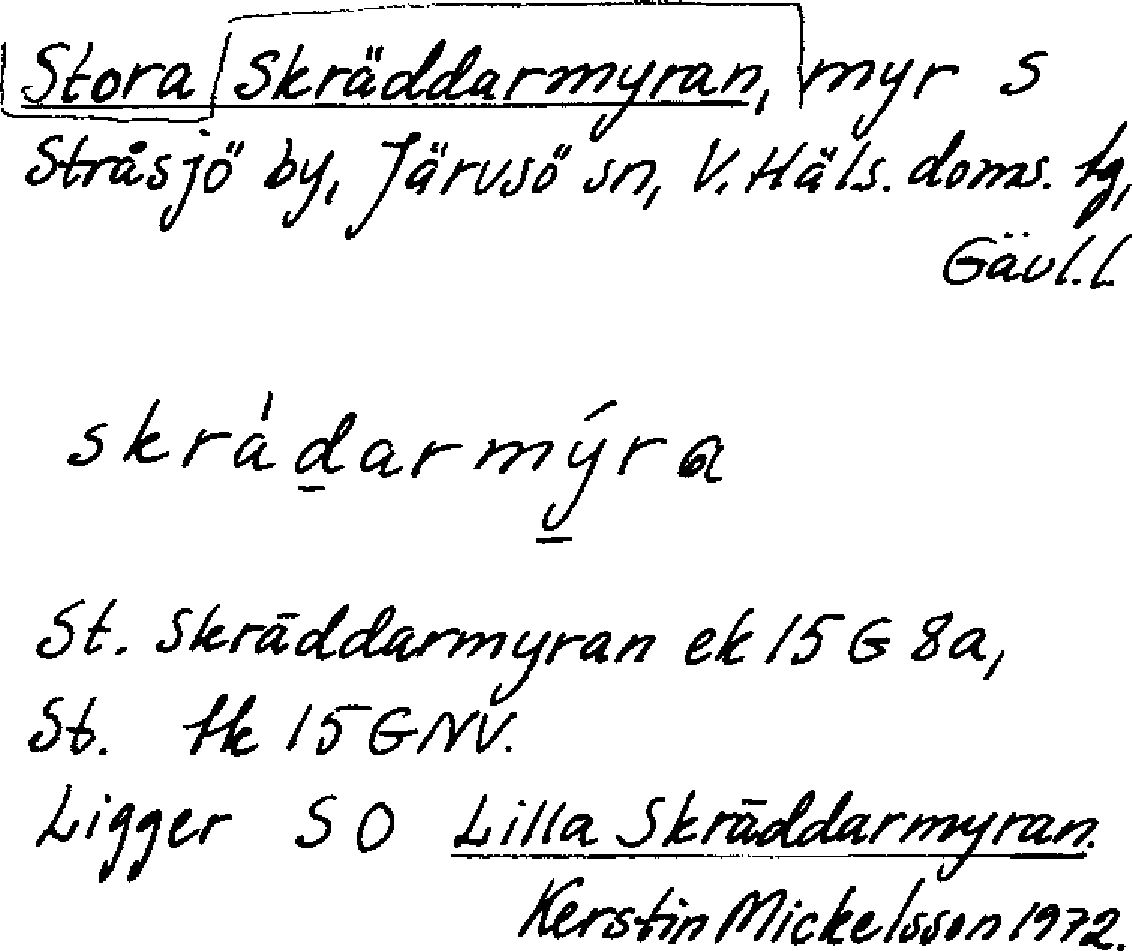 Stora Skräddarmyran, myr S
Stråsjö by, Järvsö sn, V. Häls. doms. tg,
Gävl.l.
skrádarmýra
St. Skräddarmyran ek 15 G 8a,
St. tk 15 G NV.
Ligger SO Lilla Skräddarmyran.
Kerstin Mickelsson 1972.